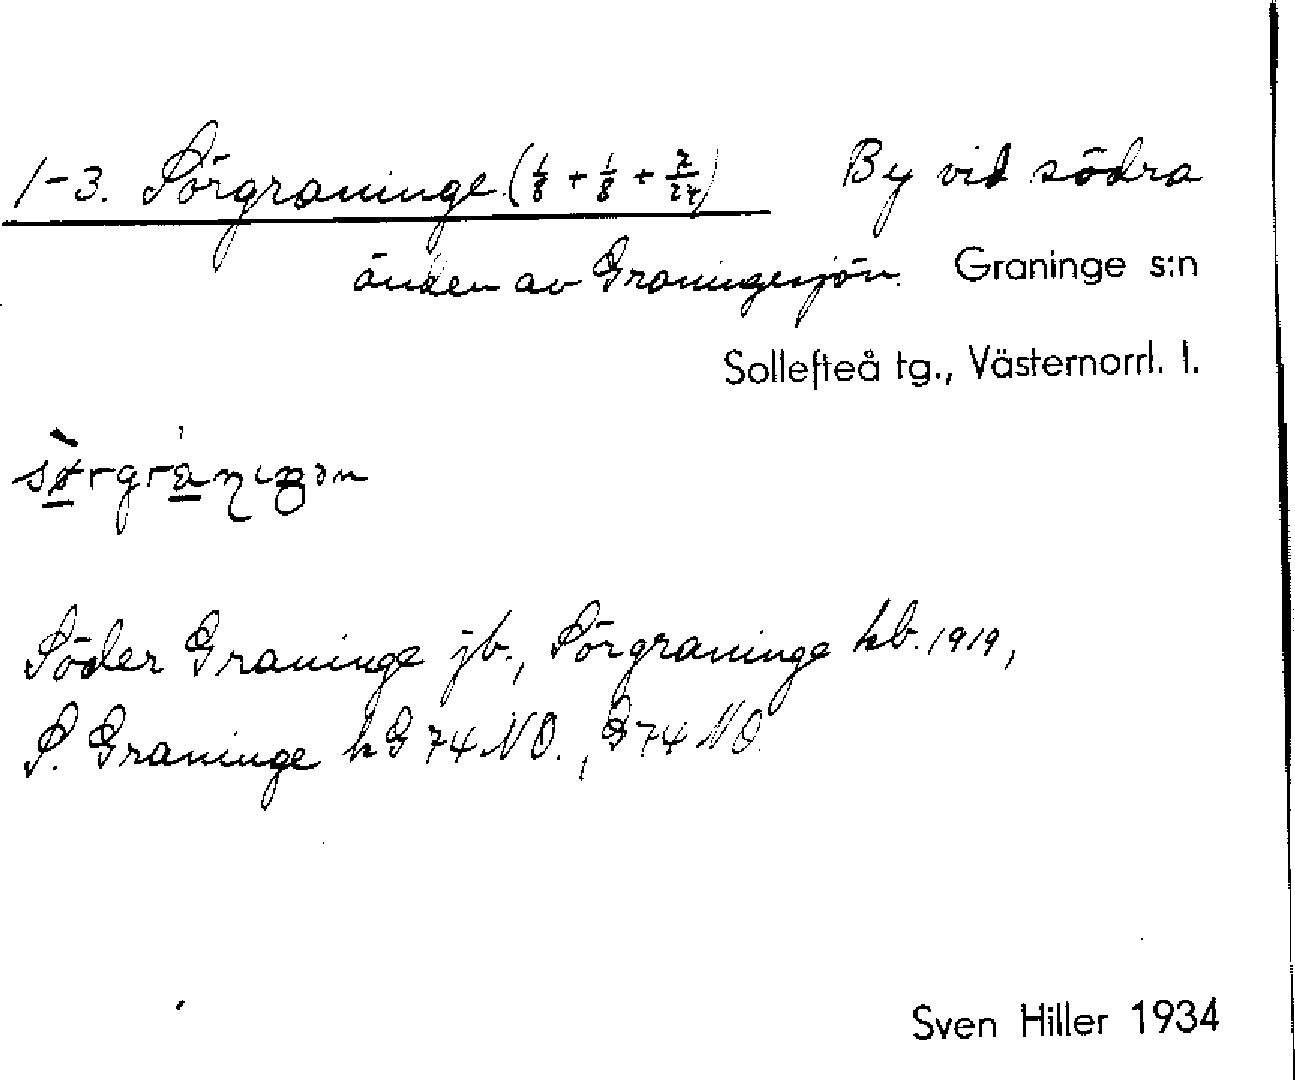 1-3. Sörgraninge (1/8 + 1/8 + 7/24) By vid södra
änden av Graningesjön. Graninge s:n
Sollefteå tg., Västernorrl. l.
Söder Graninge jb., Sörgraninge kb. 1919,
S. Graninge kG 74 NO., G 74 NO.
Sven Hiller 1934